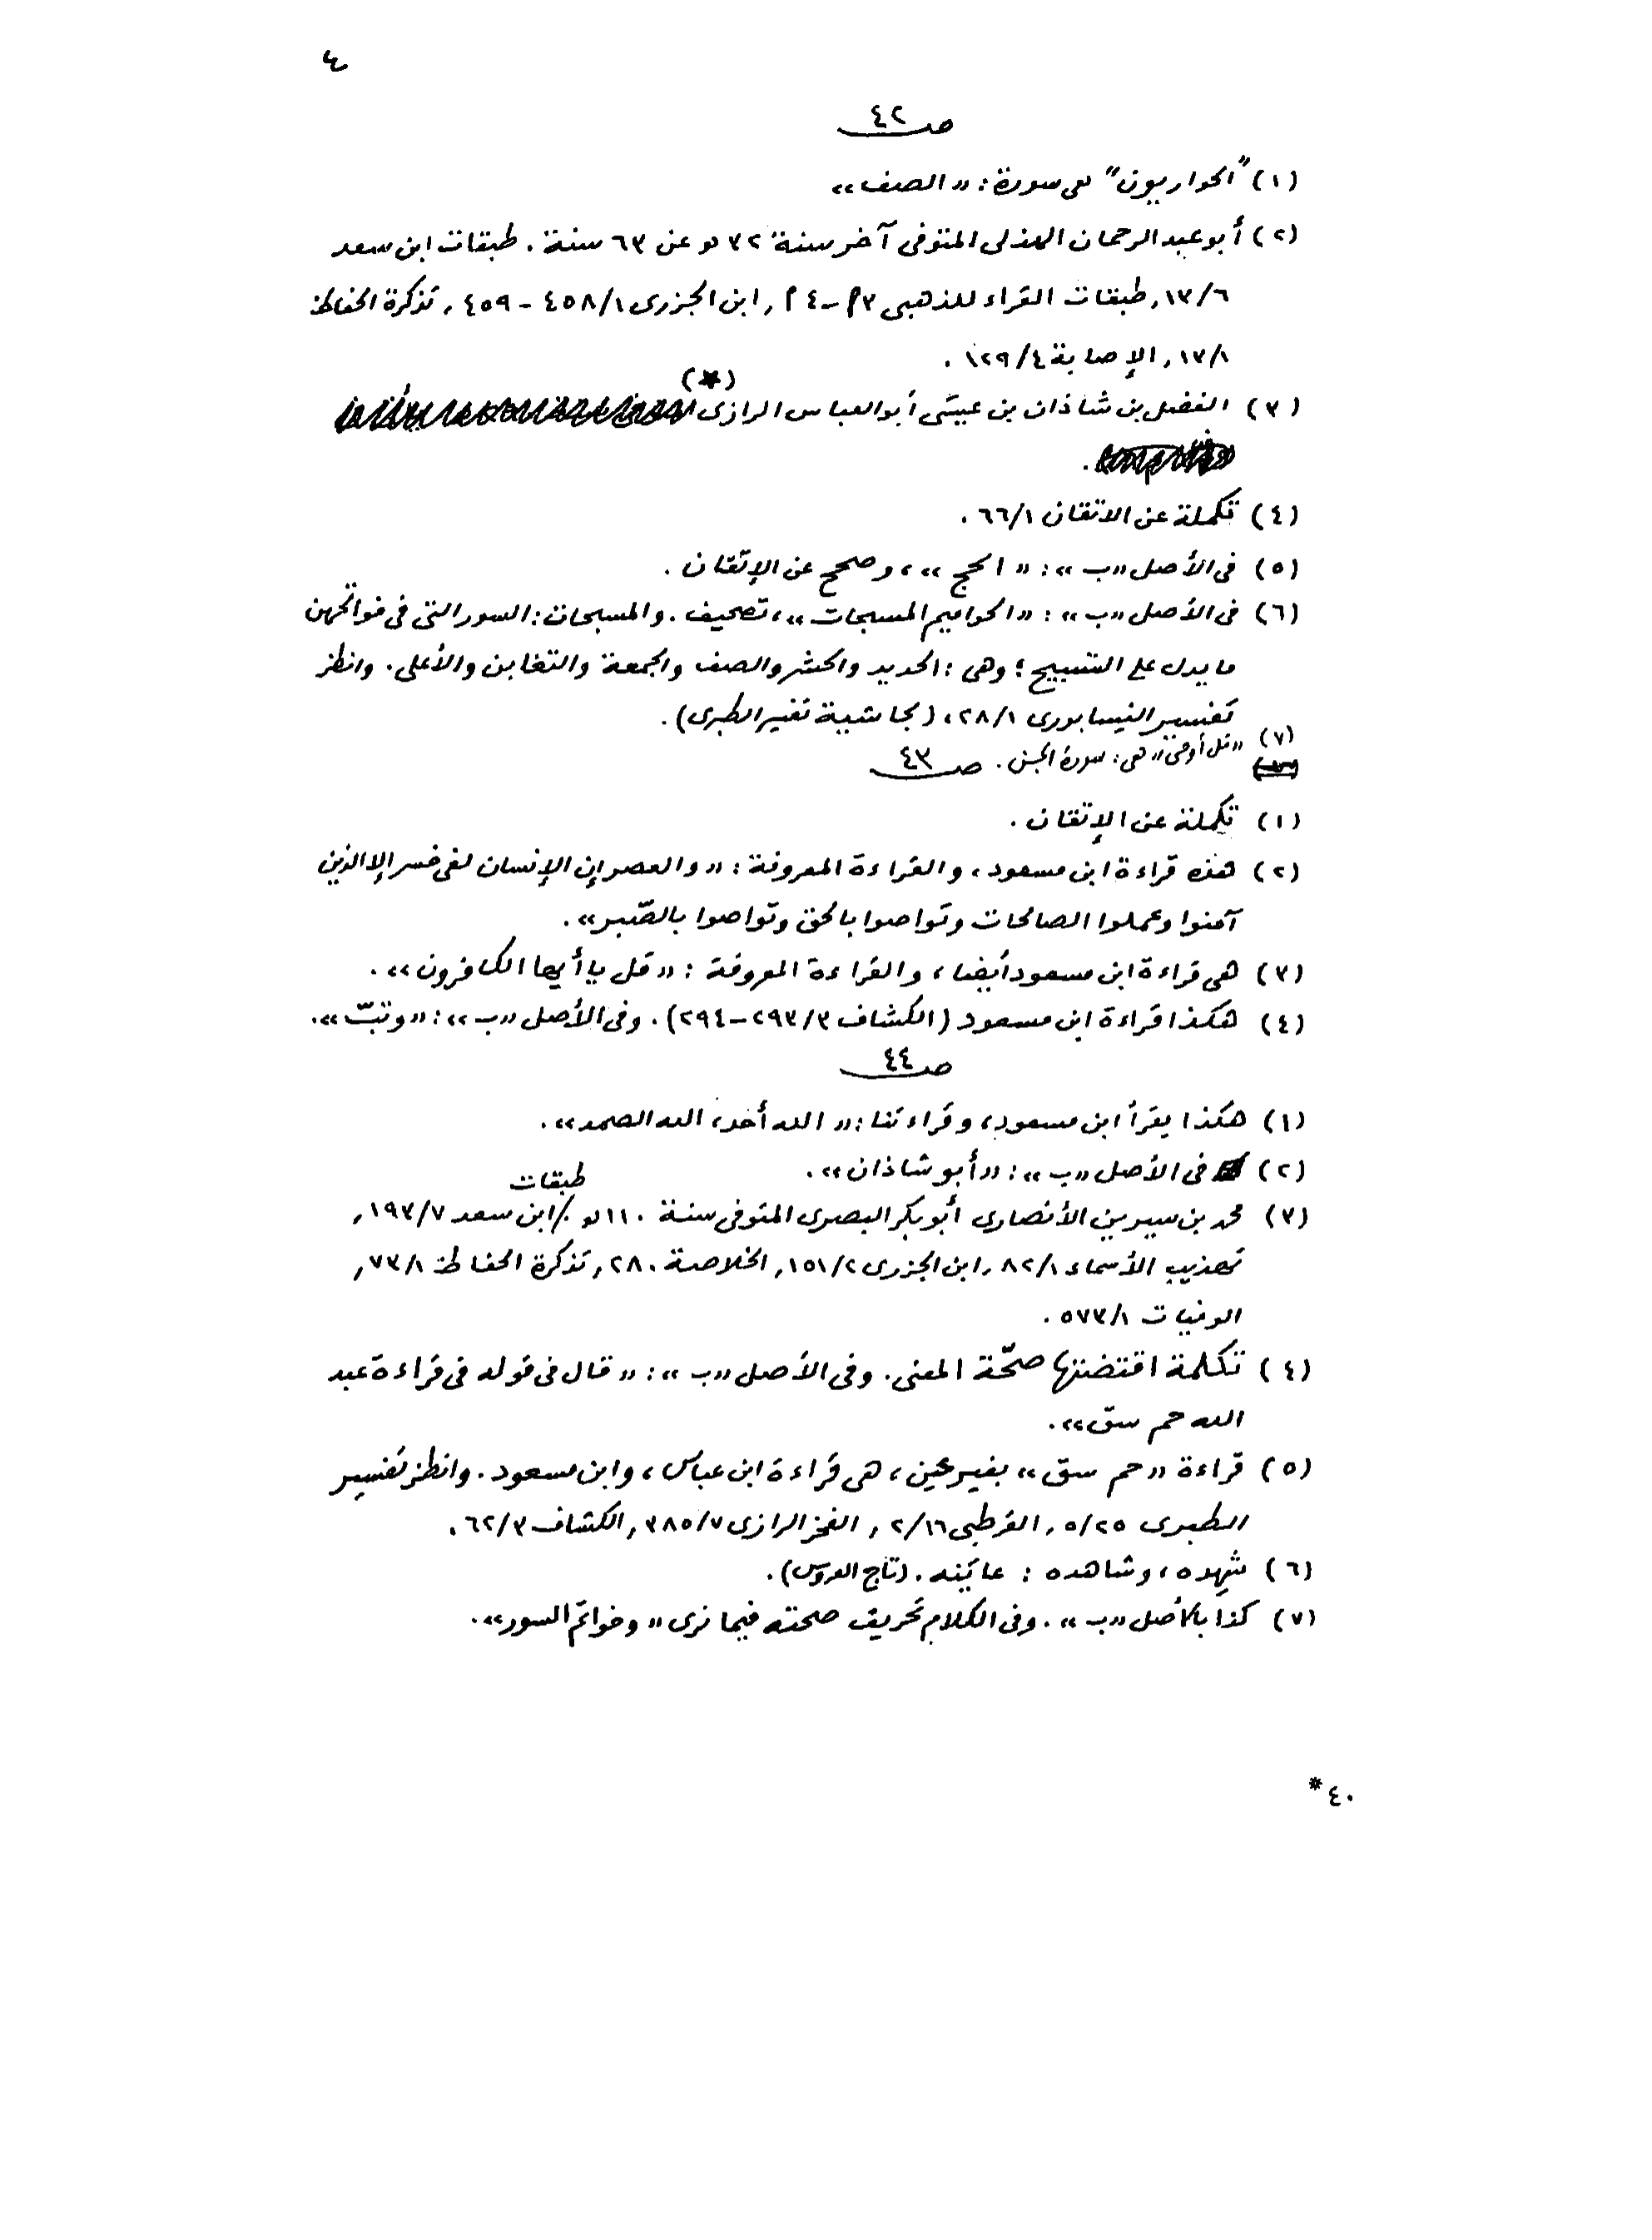 ٤
صـ ٤٢
(١) "الحواريون" هى سورة: «الصف»
(٢) أبو عبد الرحمان الهذلى المتوفى آخر سنة ٣٢ هـ عن ٦٣ سنة. طبقات ابن سعد
١٣/٦, طبقات القراء للذهبى ٣ م - ٤ م, ابن الجزرى ٤٥٨/١ - ٤٥٩, تذكرة الحفاظ
١٣/١, الإصابة ١٢٩/٤.
(٣) الفضل بن شاذان بن عيسَى أبو العباس الرازى (*)
.
(٤) تكملة عن الاتقان ٦٦/١.
(٥) فى الأصل «ب»: «الحج»، وصحح عن الإتقان.
(٦) فى الأصل «ب»: «الحواميم المسبجات»، تصحيف. والمسبحات: السور التى فى فواتحهن
ما يدل على التسبيح؛ وهى: الحديد والحشر والصف والجمعة والتغابن والأعلى. وانظر
تفسير النيسابورى ٢٨/١، (بحاشية تفسير الطبرى).
(٧) «قل أوحى» هى: سورة الجن.
صـ ٤٣
(١) تكملة عن الإتقان.
(٢) هذه قراءة ابن مسعود، والقراءة المعروفة: «والعصر إن الإنسان لفى خسر إلا الذين
آمنوا وعملوا الصالحات وتواصوا بالحق وتواصوا بالصّبر».
(٣) هى قراءة ابن مسعود أيضا، والقراءة المعروفة: «قل يا أيها الكافرون».
(٤) هكذا قراءة ابن مسعود (الكشاف ٢٩٣/٣-٢٩٤). وفى الأصل «ب»: «وتبّ».
صـ ٤٤
(١) هكذا يقرأ ابن مسعود، وقراءتنا: «الله أحد، الله الصمد».
(٢) فى الأصل «ب»: «أبو شاذان».
(٣) محمد بن سيرين الأنصارى أبو بكر البصرى المتوفى سنة ١١٠ هـ. طبقات ابن سعد ١٩٣/٧,
تهذيب الأسماء ٨٢/١, ابن الجزرى ١٥١/٢, الخلاصة ٢٨٠, تذكرة الحفاظ ٧٣/١,
الوفيات ٥٧٣/١.
(٤) تكلمة اقتضتها صحّة المعنى. وفى الأصل «ب»: «قال فى قوله فى قراءة عبد
الله حم سق».
(٥) قراءة «حم سق» بغير عين، هى قراءة ابن عباس، وابن مسعود. وانظر تفسير
الطبرى ٥/٢٥, القرطبى ٢/١٦, الفخر الرازى ٣٨٥/٧, الكشاف ٦٢/٣.
(٦) شهِده، وشاهده: عاينه. (تاج العروس).
(٧) كذا بالأصل «ب». وفى الكلام تحريف صحته فيما نرى «وخواتم السور».
٤٠*